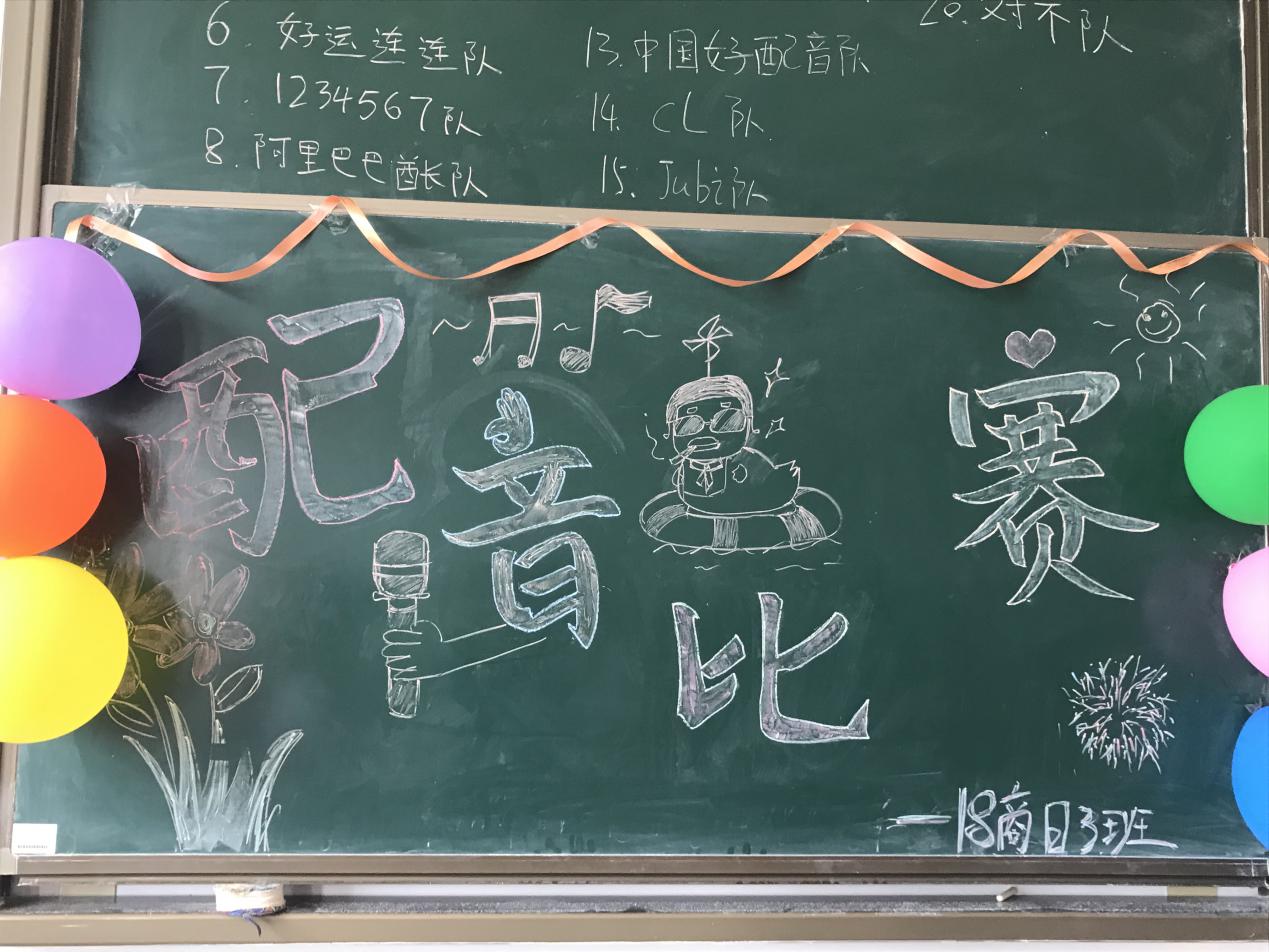 6. 好运连连队
7. 1234567队
8. 阿里巴巴酋长队
13. 中国好配音队
14. CL 队
15. Jubi队
20. 对不队
配音比赛
—18商日3班